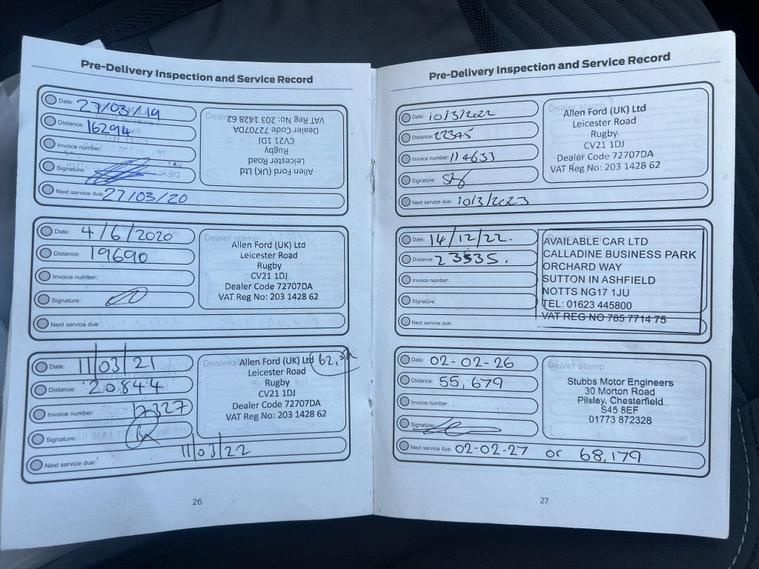 Pre-Delivery Inspection and Service Record
Date: 27/03/19
Distance: 16294
Invoice number:
Signature:
Next service due: 27/03/20
Dealer stamp
Allen Ford (UK) Ltd
Leicester Road
Rugby
CV21 1DJ
Dealer Code 72707DA
VAT Reg No: 203 1428 62
Date: 4/6/2020
Distance: 19690
Invoice number:
Signature:
Next service due:
Dealer stamp
Allen Ford (UK) Ltd
Leicester Road
Rugby
CV21 1DJ
Dealer Code 72707DA
VAT Reg No: 203 1428 62
Date: 11/03/21
Distance: 20844
Invoice number: 7327
Signature:
Next service due: 11/03/22
Dealer stamp
Allen Ford (UK) Ltd
Leicester Road
Rugby
CV21 1DJ
Dealer Code 72707DA
VAT Reg No: 203 1428 62
26
Pre-Delivery Inspection and Service Record
Date: 10/3/2022
Distance: 22345
Invoice number: 114633
Signature:
Next service due: 10/3/2023
Dealer stamp
Allen Ford (UK) Ltd
Leicester Road
Rugby
CV21 1DJ
Dealer Code 72707DA
VAT Reg No: 203 1428 62
Date: 14/12/22.
Distance: 23535.
Invoice number:
Signature:
Next service due:
Dealer stamp
AVAILABLE CAR LTD
CALLADINE BUSINESS PARK
ORCHARD WAY
SUTTON IN ASHFIELD
NOTTS NG17 1JU
TEL: 01623 445800
VAT REG NO 785 7714 75
Date: 02-02-26
Distance: 55,679
Invoice number:
Signature:
Next service due: 02-02-27 or 68,179
Dealer stamp
Stubbs Motor Engineers
30 Morton Road
Pilsley, Chesterfield
S45 8EF
01773 872328
27